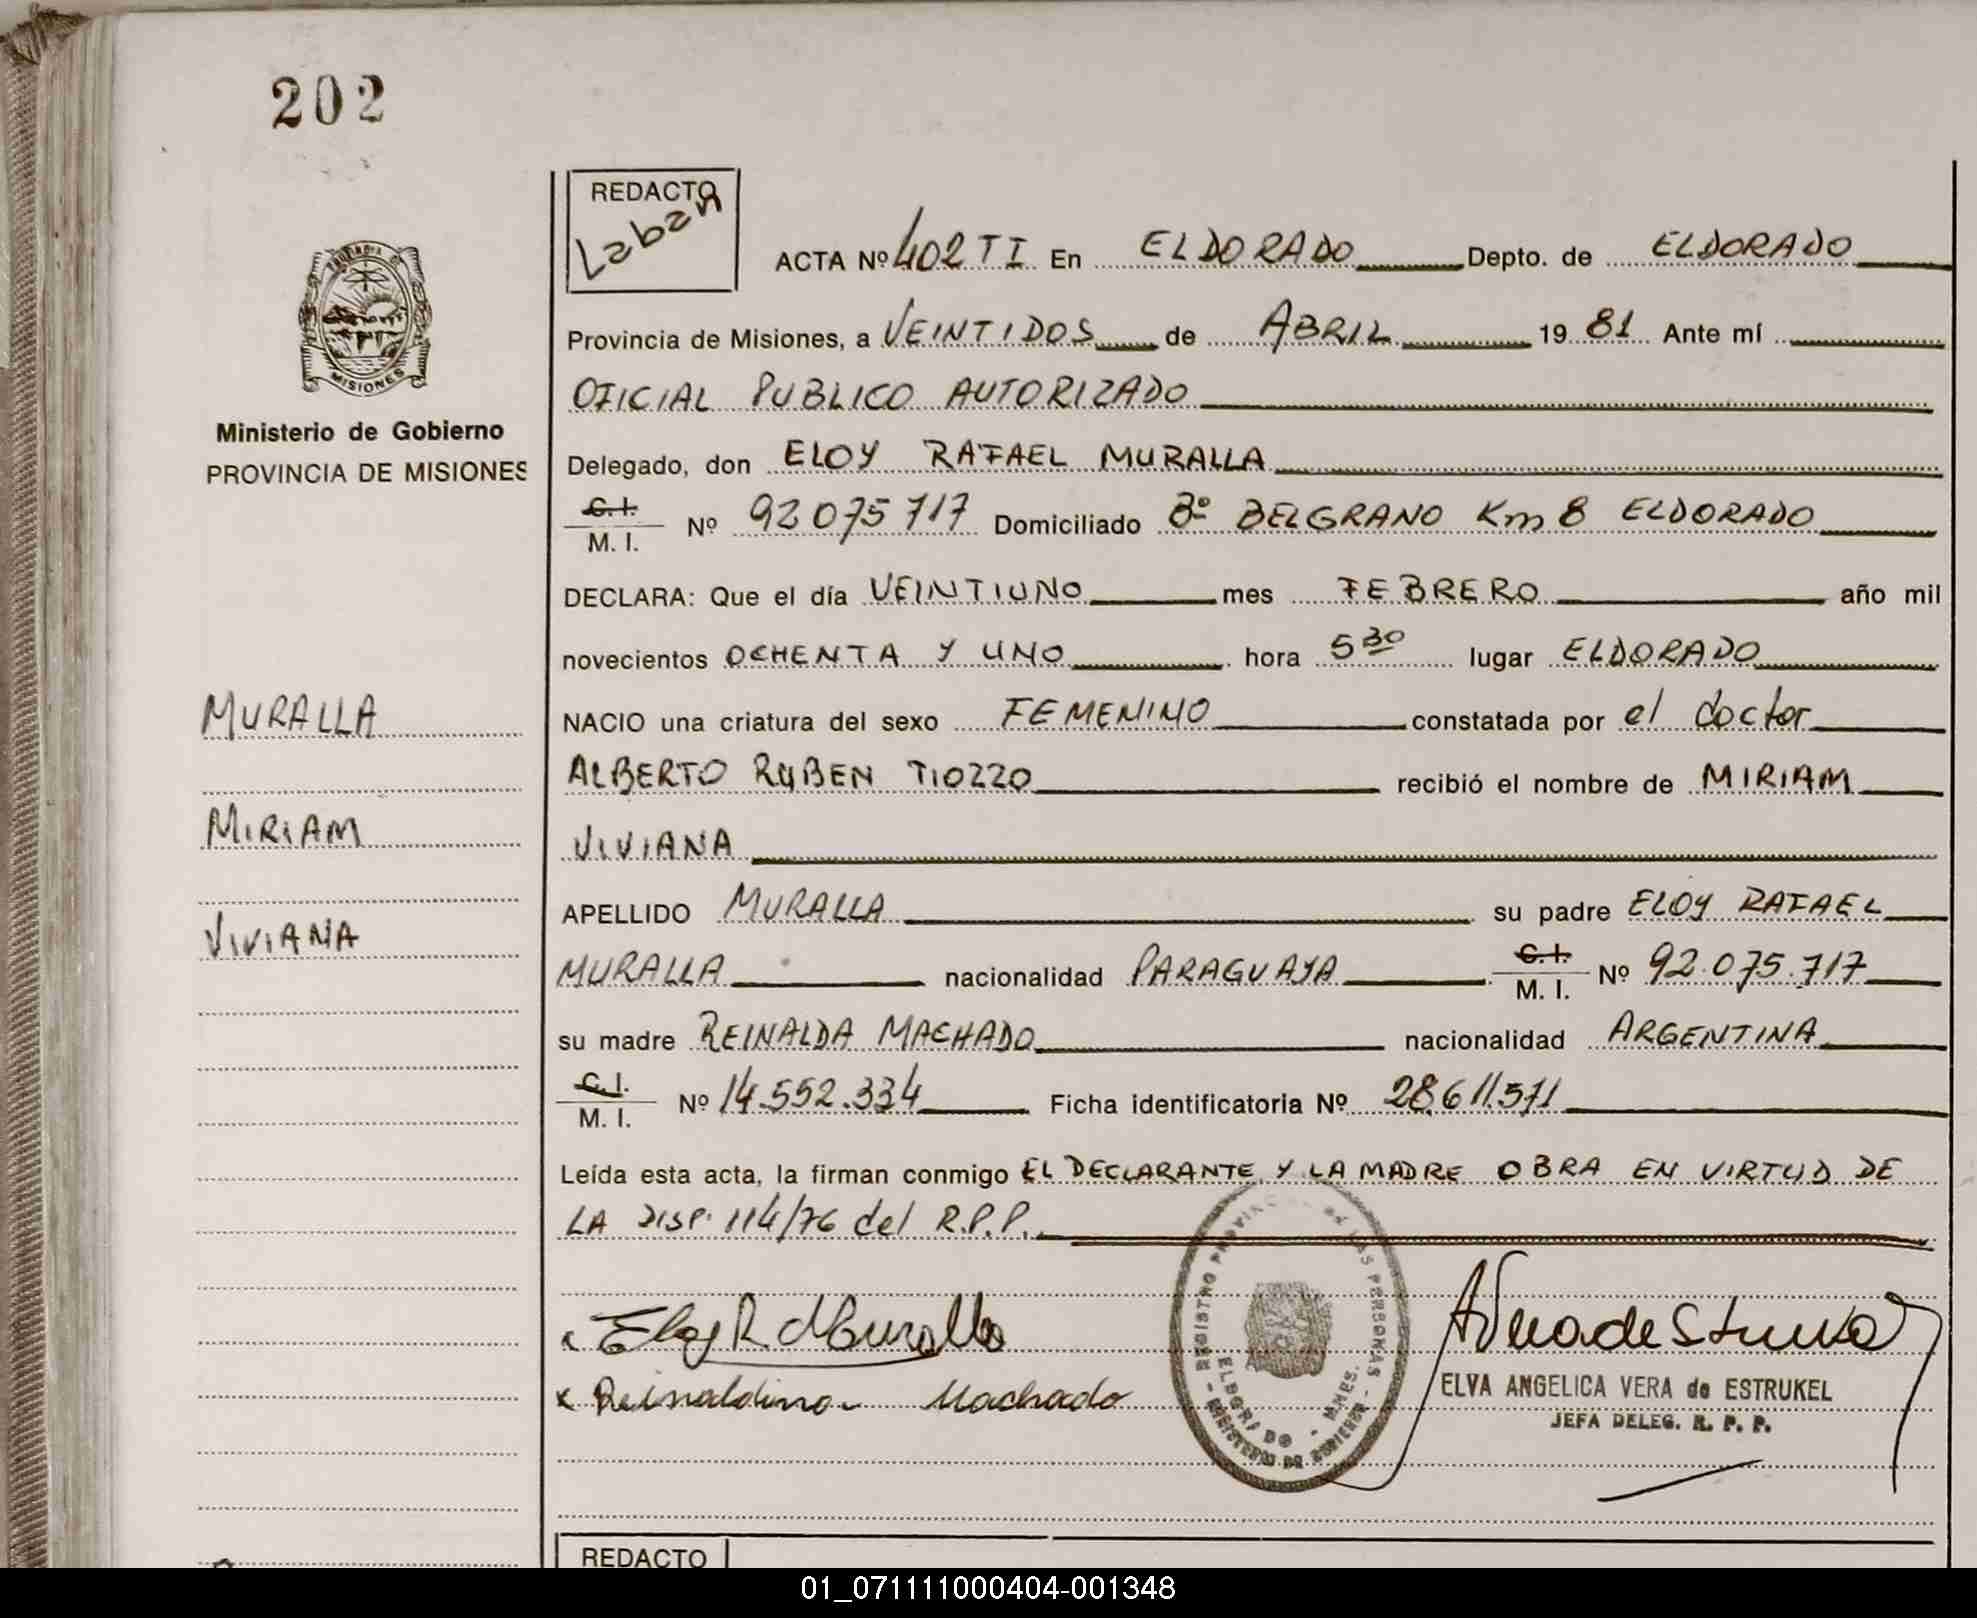 202
REDACTO
Laban
ACTA Nº 402 TI En ELDORADO Depto. de ELDORADO
Provincia de Misiones, a VEINTIDOS de ABRIL 1981 Ante mí
OFICIAL PUBLICO AUTORIZADO
MISIONES
Ministerio de Gobierno
PROVINCIA DE MISIONES
Delegado, don ELOY RAFAEL MURALLA
C. I.
M. I. Nº 92 075 717 Domiciliado Bº BELGRANO Km 8 ELDORADO
DECLARA: Que el día VEINTIUNO mes FEBRERO año mil
novecientos OCHENTA Y UNO hora 5 30 lugar ELDORADO
MURALLA
NACIO una criatura del sexo FEMENINO constatada por el doctor
ALBERTO RUBEN TIOZZO recibió el nombre de MIRIAM
MIRIAM
VIVIANA
VIVIANA
APELLIDO MURALLA su padre ELOY RAFAEL
MURALLA nacionalidad PARAGUAYA C. I.
M. I. Nº 92.075.717
su madre REINALDA MACHADO nacionalidad ARGENTINA
C. I.
M. I. Nº 14.552.334 Ficha identificatoria Nº 28.611.571
Leída esta acta, la firman conmigo EL DECLARANTE Y LA MADRE OBRA EN VIRTUD DE
LA DISP. 114/76 del R.P.P.
REGISTRO PROVINC DE LAS PERSONAS
ELDORADO - MNES.
MINISTERIO DE GOBIERNO
Eloy R Muralla
x Reinaldina Machado
A Vera de Estrukel
ELVA ANGELICA VERA de ESTRUKEL
JEFA DELEG. R. P. P.
REDACTO
01_071111000404-001348